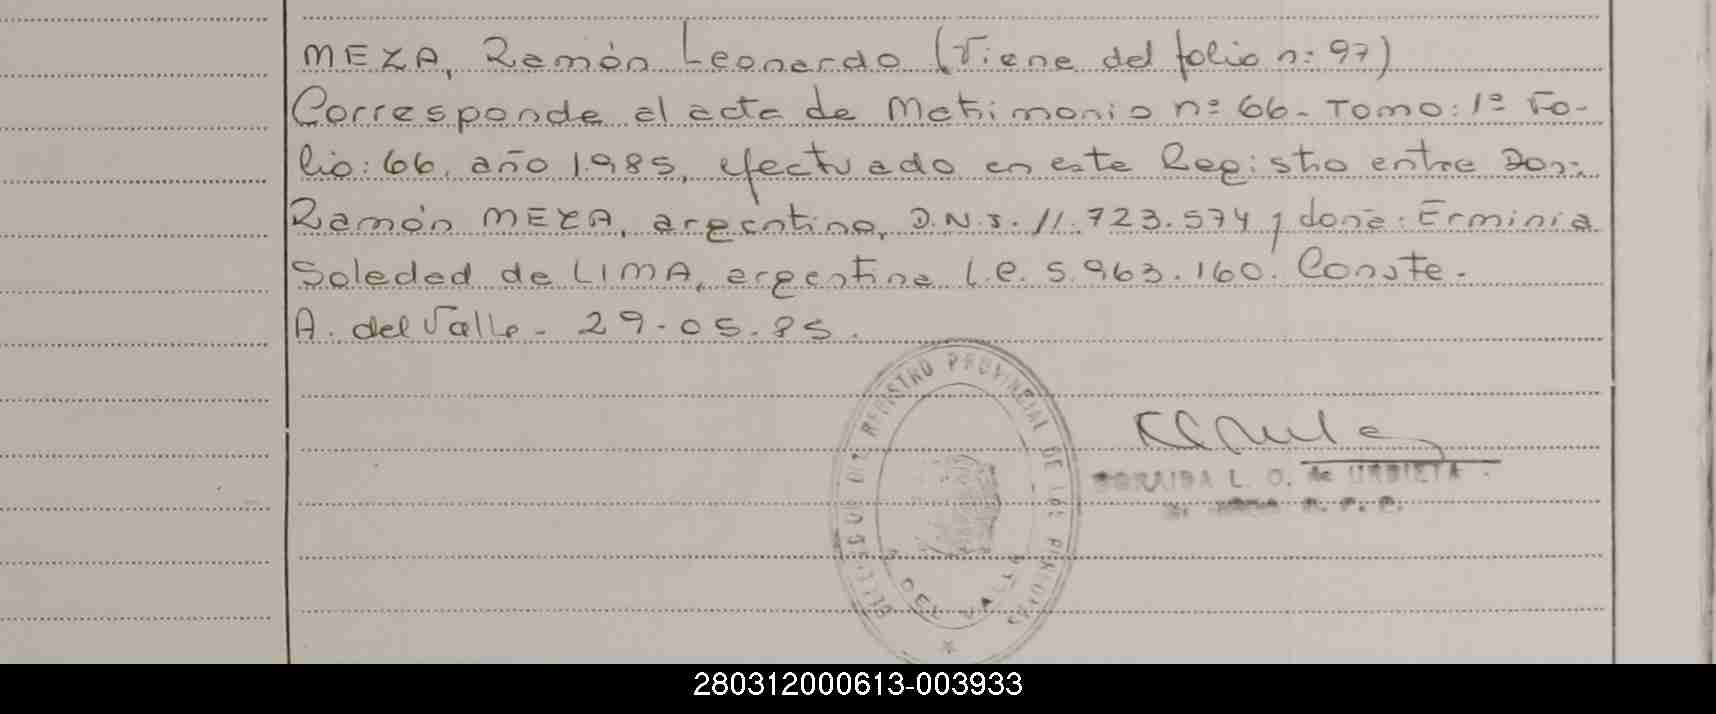 MEZA, Ramón Leonardo (Viene del folio n: 97)
Corresponde al acta de Matrimonio nº 66. Tomo: 1º Fo-
lio: 66, año 1.985, efectuado en este Registro entre Don:
Ramón MEZA, argentino, D.N.I. 11.723.574 y doña: Erminia
Soledad de LIMA, argentina L.C. 5.963.160. Conste.
A. del Valle - 29-05-85.
DEL REGISTRO PROVINCIAL DE LAS PERSONAS
A. DEL VALLE
L. O. de URBIETA
R. P. P.
280312000613-003933